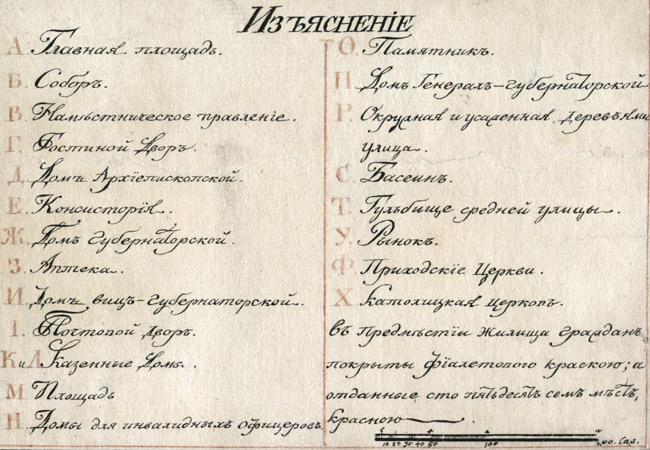 Изъясненіе
А. Главная площадь.
Б. Соборъ.
В. Намѣстническое правленіе.
Г. Гостиной Дворъ.
Д. Домъ Архіепископской.
Е. Консисторія.
Ж. Домъ Губернаторской.
З. Аптека.
И. Домъ вицъ-губернаторской.
І. Почтовой дворъ.
К и Л Казенные Домы.
М. Площадь
Н. Домы для инвалидныхъ офицеровъ
О. Памятникъ.
П. Домъ Генералъ-Губернаторской
Р. Окружная и усаженная деревьями
улица.
С. Басеинъ.
Т. Гульбище средней улицы.
У. Рынокъ.
Ф. Приходскіе Церкви.
Х. Католицкая церковь.
въ предмѣстіи жилища гражданъ
покрыты фіалетовою краскою; а
отданные сто пѣтьдесятъ семъ мѣстъ,
красною.
10 20 30 40 50 100 200. Саж.